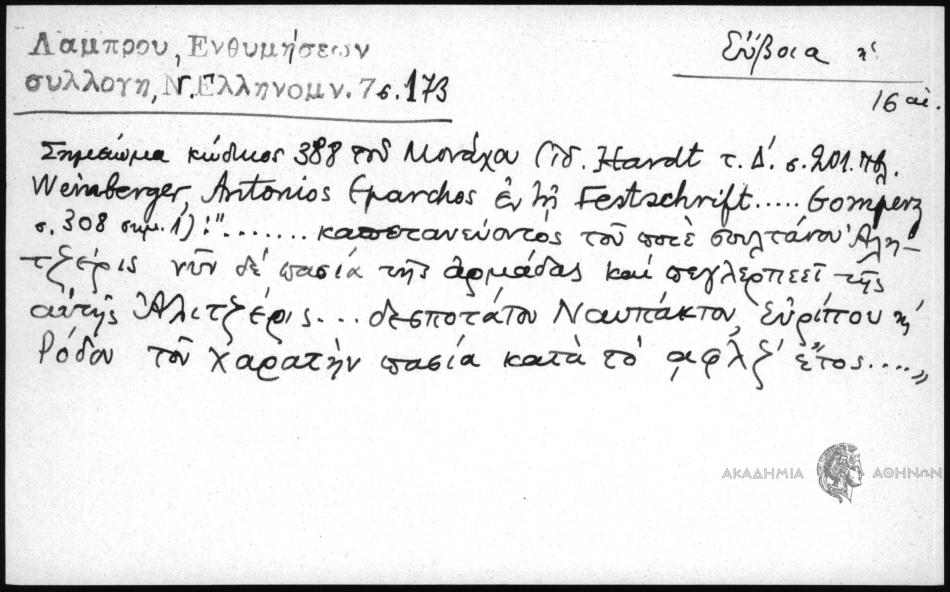 Λαμπρου, Ενθυμήσεων
συλλογη, Ν. Ελληνομν. 7 σ. 173
Εὔβοια κ'
16 αἰ.
Σημείωμα κώδικος 388 τοῦ Μονάχου (ἰδ. Hardt τ. Δ'. σ. 201. πβ.
Weinberger, Antonios Eparchos ἐν τῇ Festschrift ..... Gomperz
σ. 308 σημ. 1) : "........ καπετανεύοντος τοῦ ποτὲ σουλτάνου Ἀλη-
τζέρις νῦν δὲ πασία τῆς ἀρμάδας καὶ πεγλερπεεῖ τῆς
αὐτῆς Ἀλιτζέρις ... δεσποτάτου Ναυπάκτου, Εὐρίπου κ'
Ρόδου τοῦ χαρατὴν πασία κατὰ τὸ ͵αφλζ' ἔτος ...."
ΑΚΑΔΗΜΙΑ ΑΘΗΝΩΝ